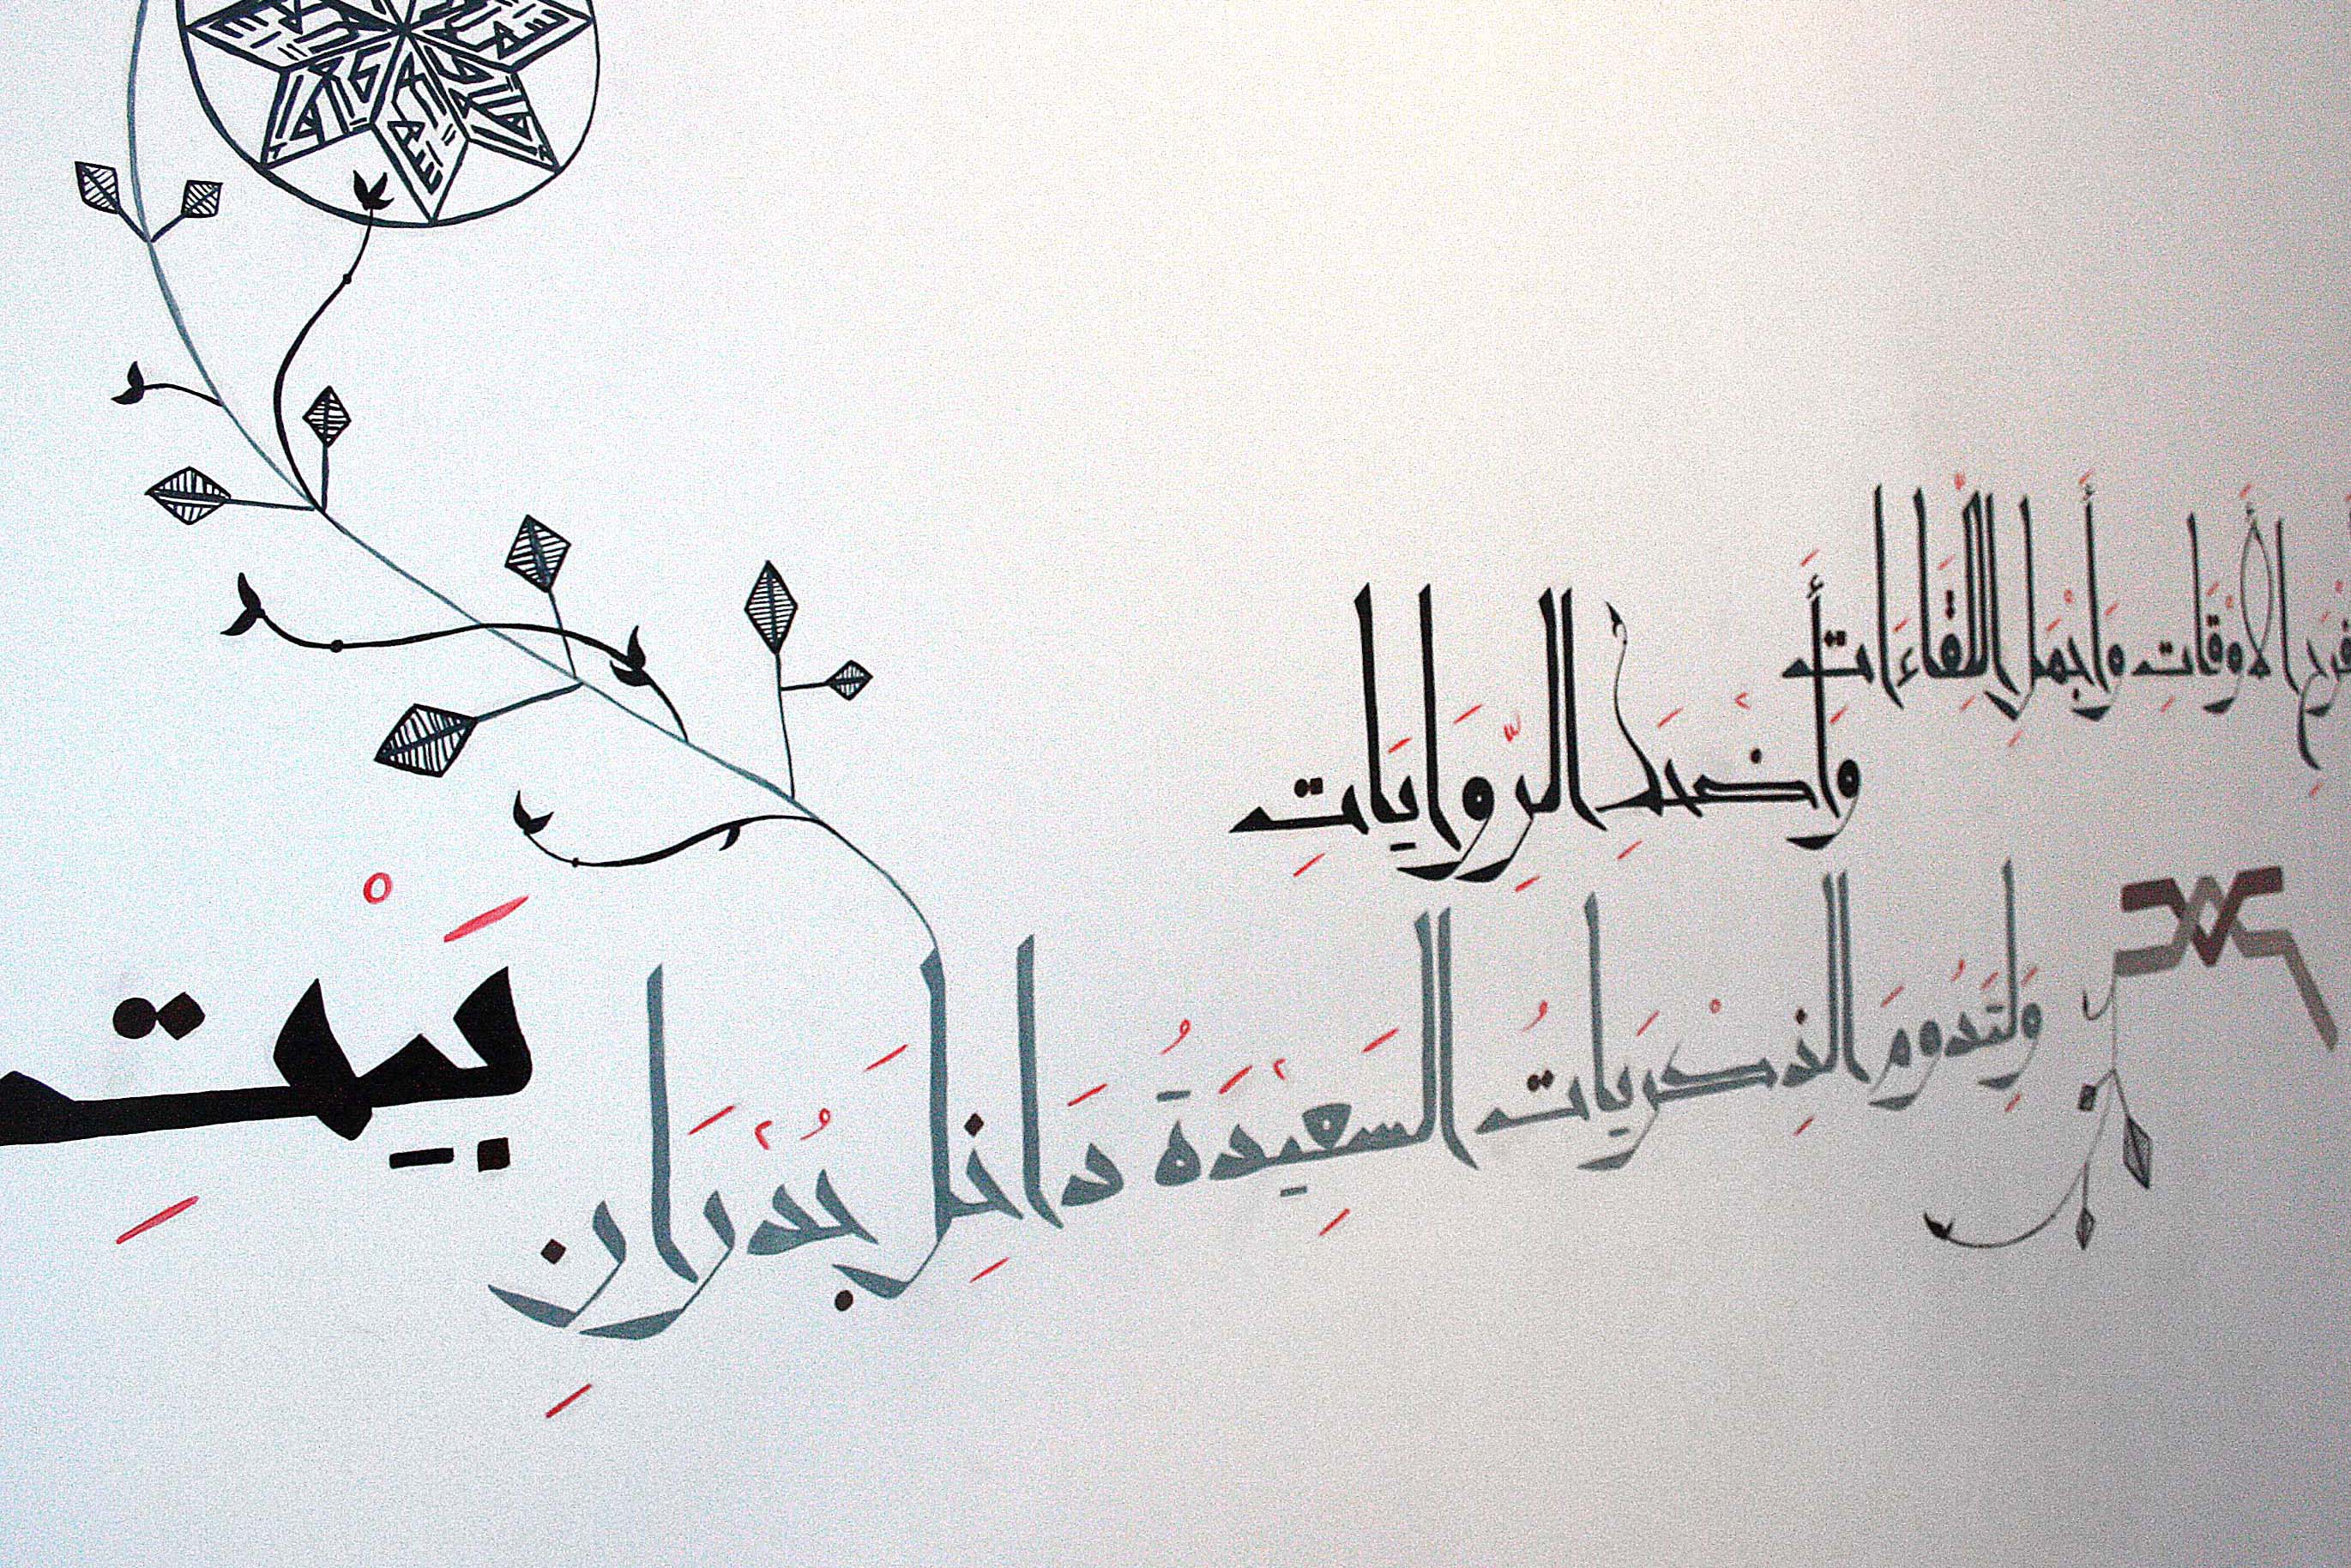 فْرَحِ الأَوْقَاتِ وَأَجْمَلِ اللِّقَاءَاتِ
وَأَضْحَكِ الرِّوَايَاتِ
وَلِتَدُومَ الذِكْرَيَاتُ السَعِيْدَةُ دَاخِلَ جُدْرَانِ
بَيْتِ